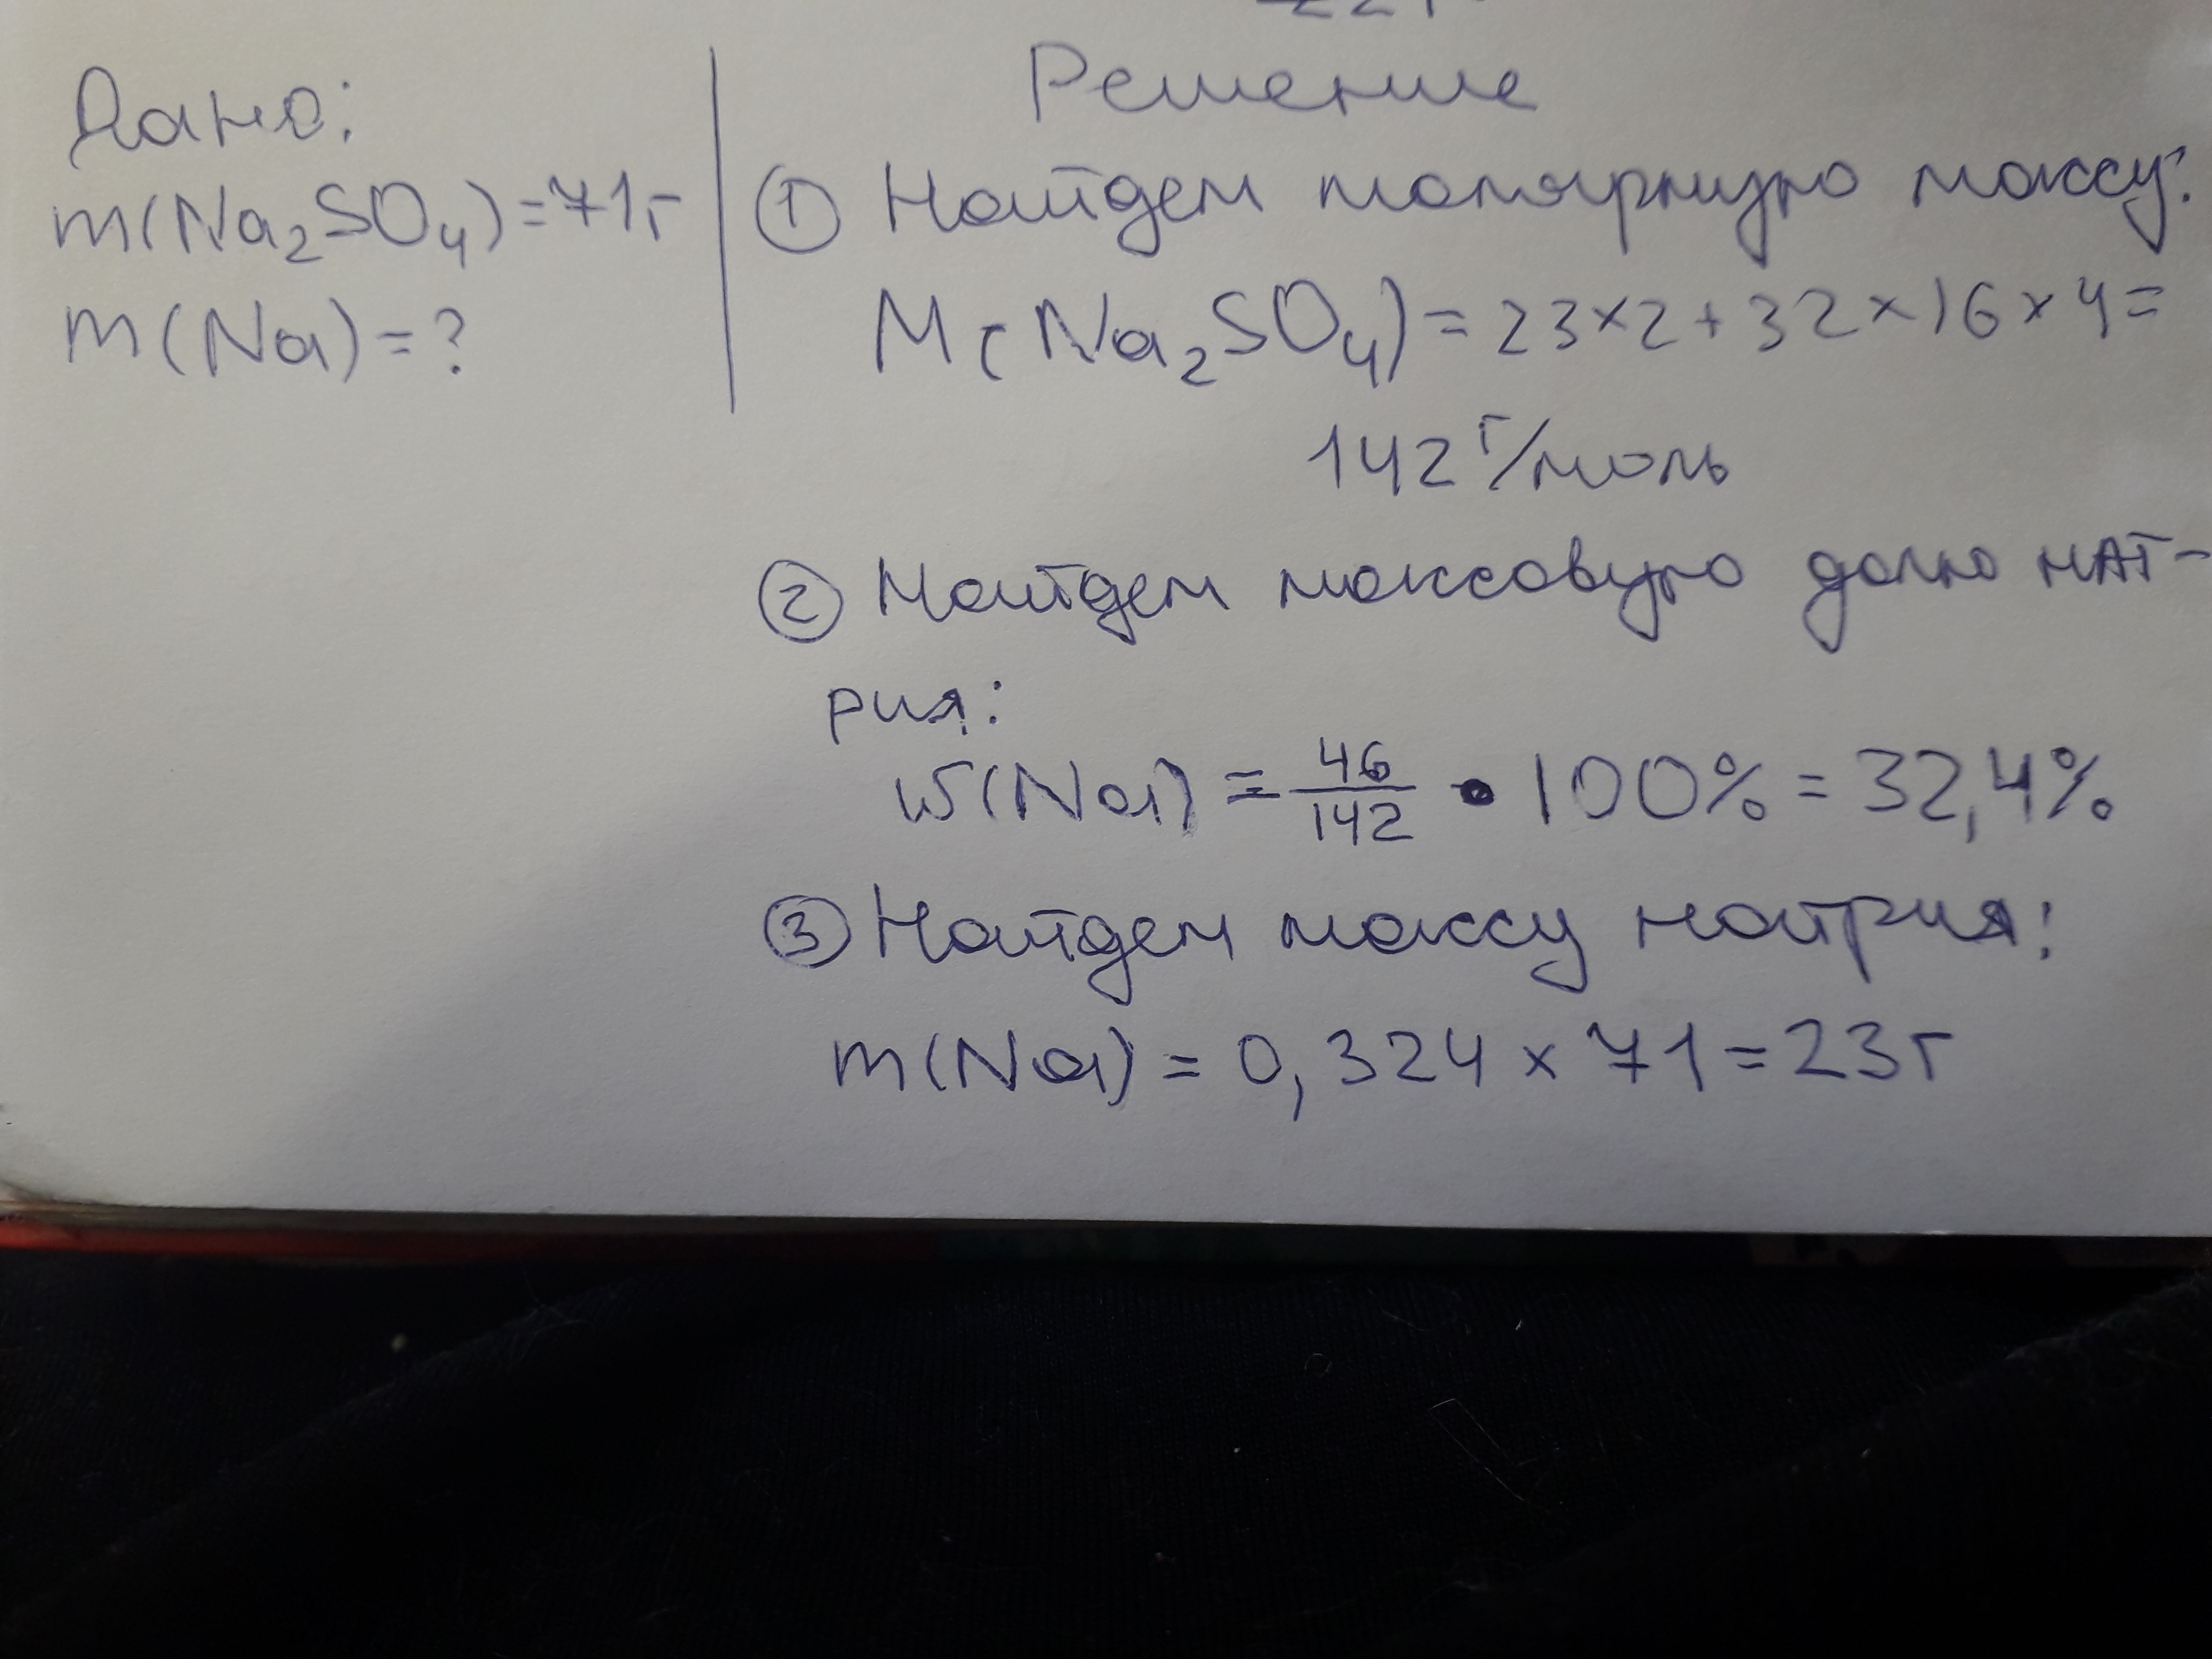 Дано:
m(Na₂SO₄)=71г
m(Na)=?
Решение
① Найдем молярную массу:
M(Na₂SO₄)=23×2+32×16×4=
142 г/моль
② Найдем массовую долю НАТ-
рия:
ω(Na) = 46/142 • 100% = 32,4%
③ Найдем массу натрия:
m(Na) = 0,324 × 71 = 23г